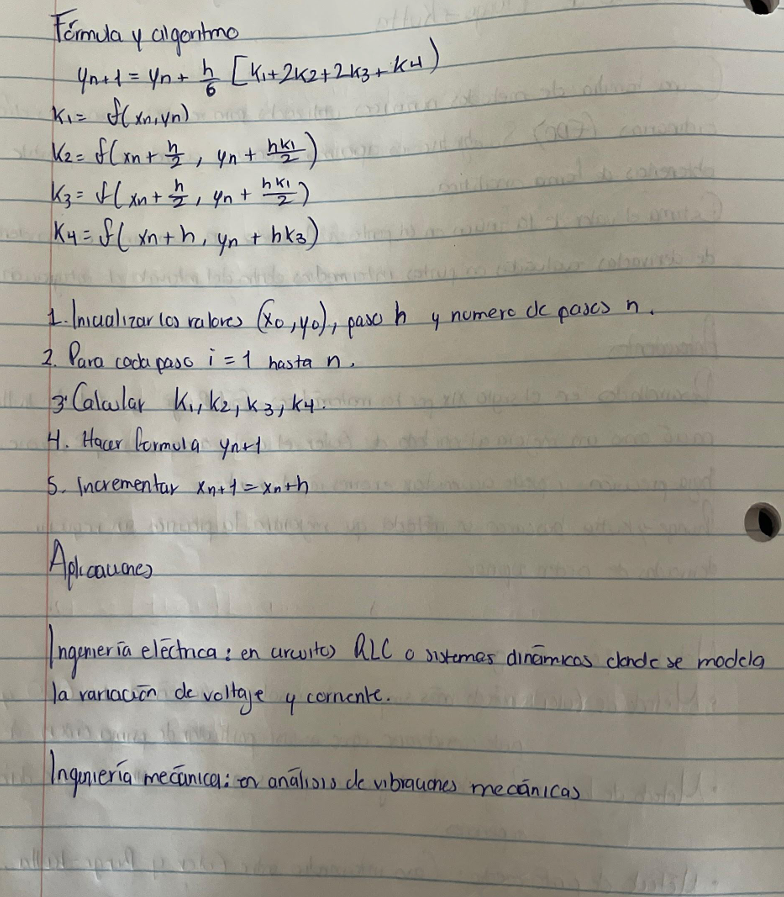 Fórmula y algoritmo
yn+1 = yn + h/6 [K1+2K2+2K3+K4)
K1= f(xn,yn)
K2= f(xn + h/2, yn + hK1/2)
K3= f(xn + h/2, yn + hK1/2)
K4= f( xn + h, yn + hK3)
1. Inicializar los valores (x0,y0), paso h y numero de pasos n.
2. Para cada paso i = 1 hasta n.
3. Calcular K1, K2, K3, K4.
4. Hacer formula yn+1
5. Incrementar xn+1 = xn+h
Aplicaciones
Ingeniería eléctrica: en circuitos RLC o sistemas dinámicos donde se modela
la variación de voltaje y corriente.
Ingeniería mecánica: en análisis de vibraciones mecánicas